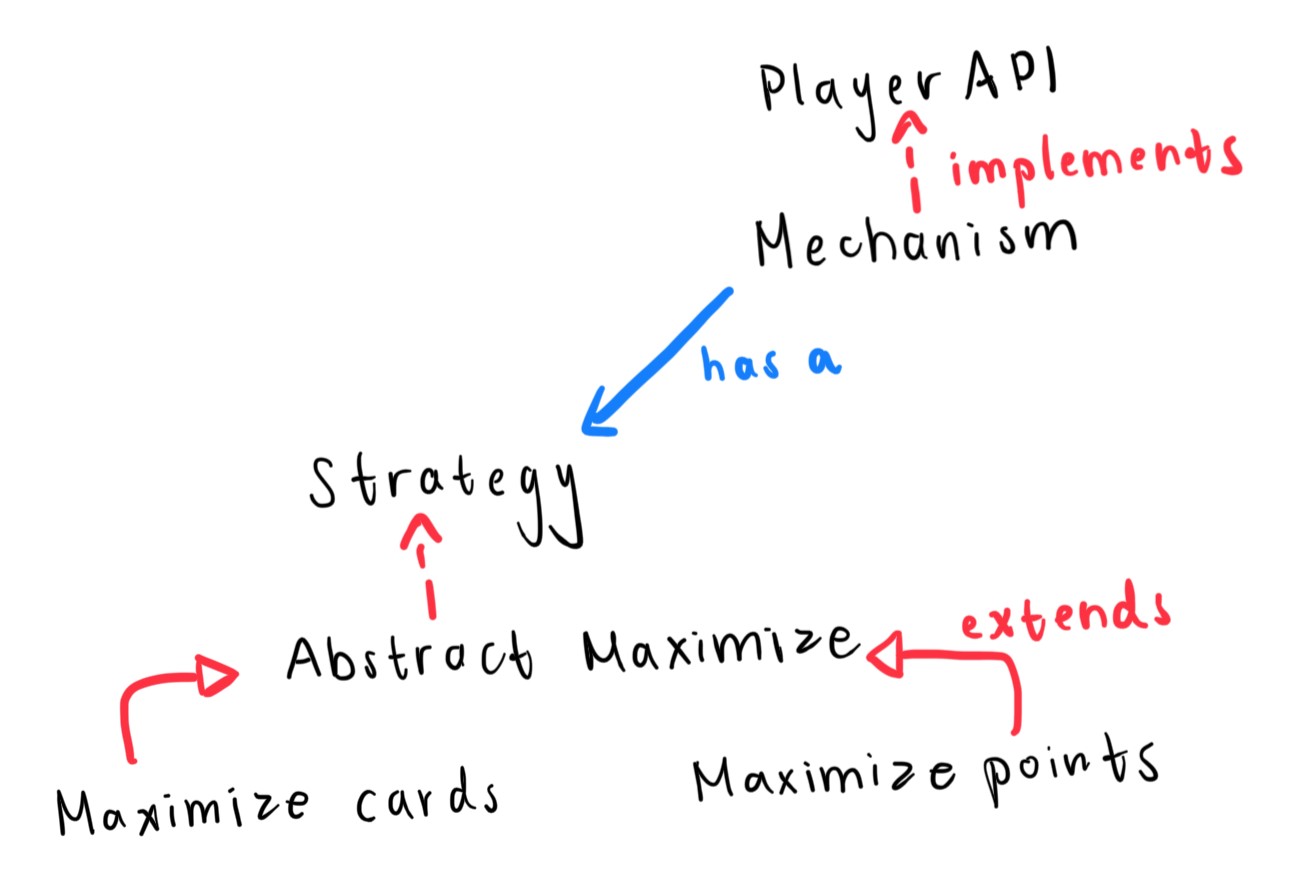 Player API
implements
Mechanism
has a
Strategy
extends
Abstract Maximize
Maximize cards
Maximize points